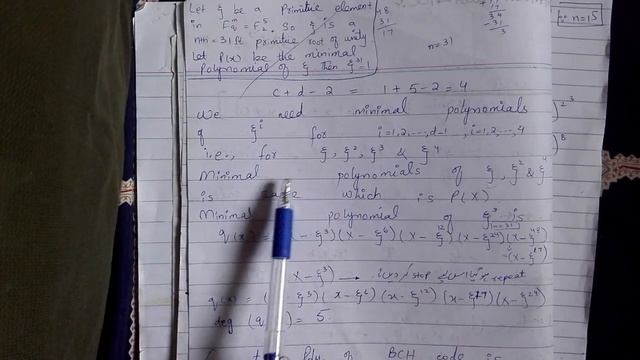 Let ξ be a Primitive element
in F_q^m = F_2^5. So ξ is a
nth = 31st primitive root of unity
Let P(x) be the minimal
Polynomial of ξ then ξ^31 = 1
48
31
17
n=31
34
-31
3
n=15
c + d - 2 = 1 + 5 - 2 = 4
We need minimal polynomials
ξ^i for i=1,2,---,d-1, i=1,2,--,4
i.e., for ξ, ξ^2, ξ^3 & ξ^4
Minimal polynomials of ξ, ξ^2 & ξ^4
is which is P(X)
Minimal polynomial of ξ^3 is
q(x) = - ξ^3)(x - ξ^6)(x - ξ^12)(x - ξ^24)(x - ξ^48)
[n=31]
(x - ξ^17)
x - ξ^3) → stop repeat
ξ^3)(x - ξ^6)(x - ξ^12)(x - ξ^17)(x - ξ^24)
deg (q ) = 5
Poly. of BCH code is